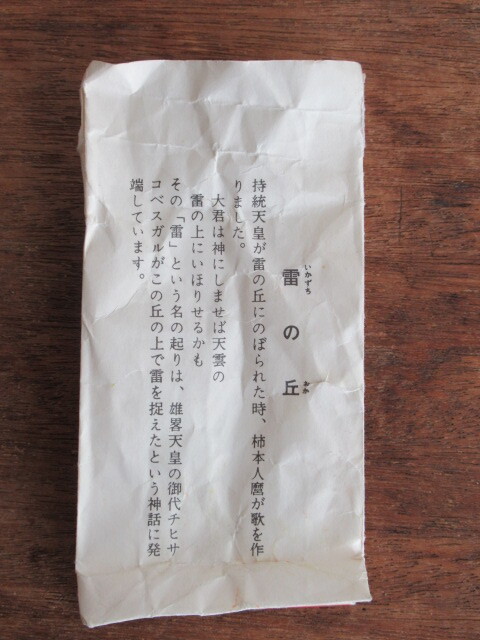 雷の丘
いかずち
おか
持統天皇が雷の丘にのぼられた時、柿本人麿が歌を作
りました。
大君は神にしませば天雲の
雷の上にいほりせるかも
その「雷」という名の起りは、雄畧天皇の御代チヒサ
コベスガルがこの丘の上で雷を捉えたという神話に発
端しています。